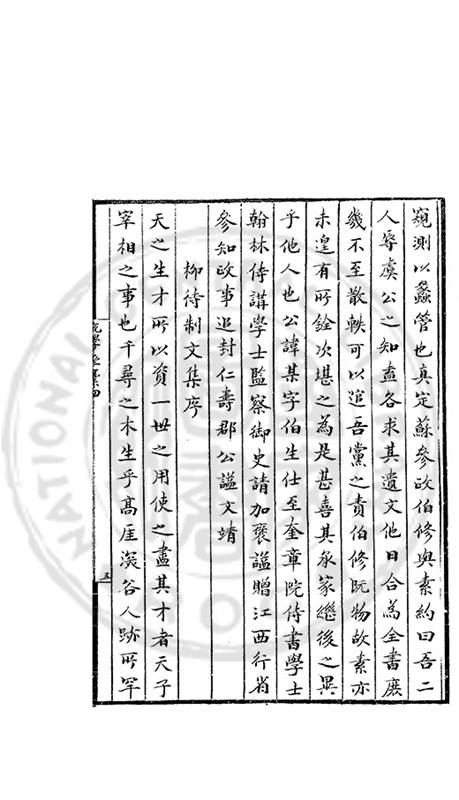 窺測以蠡管也真定蘇參政伯修與素約曰吾二
人辱虞公之知盍各求其遺文他日合為全書庶
幾不至散軼可以逭吾黨之責伯修既物故素亦
未遑有所銓次堪之為是甚喜其承家繼後之異
乎他人也公諱某字伯生仕至奎章院侍書學士
翰林侍講學士監察御史請加褒謚贈江西行省
參知政事追封仁壽郡公謚文靖
柳待制文集序
天之生才所以資一世之用使之盡其才者天子
宰相之事也千尋之木生乎高厓深谷人跡所罕
五
NATIONAL